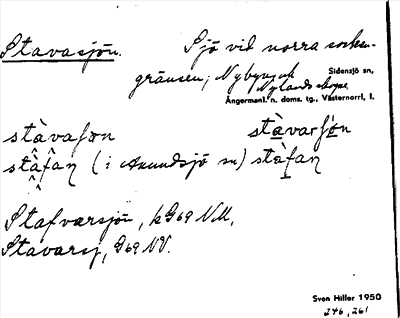 Stavasjön. Sjö vid norra socken-
gränsen; Nybygget
Nylandsbergs,
Sidensjö sn,
Ångermanl. n. doms. tg., Västernorrl. l.
stàvaʃɔn stàvarʃɔn
stàfaɳ (i Anundsjö sn) stàfaɳ
Stafvarsjön, kG69 NV.,
Stavarsj, G69 NV.
Sven Hiller 1950
246, 261